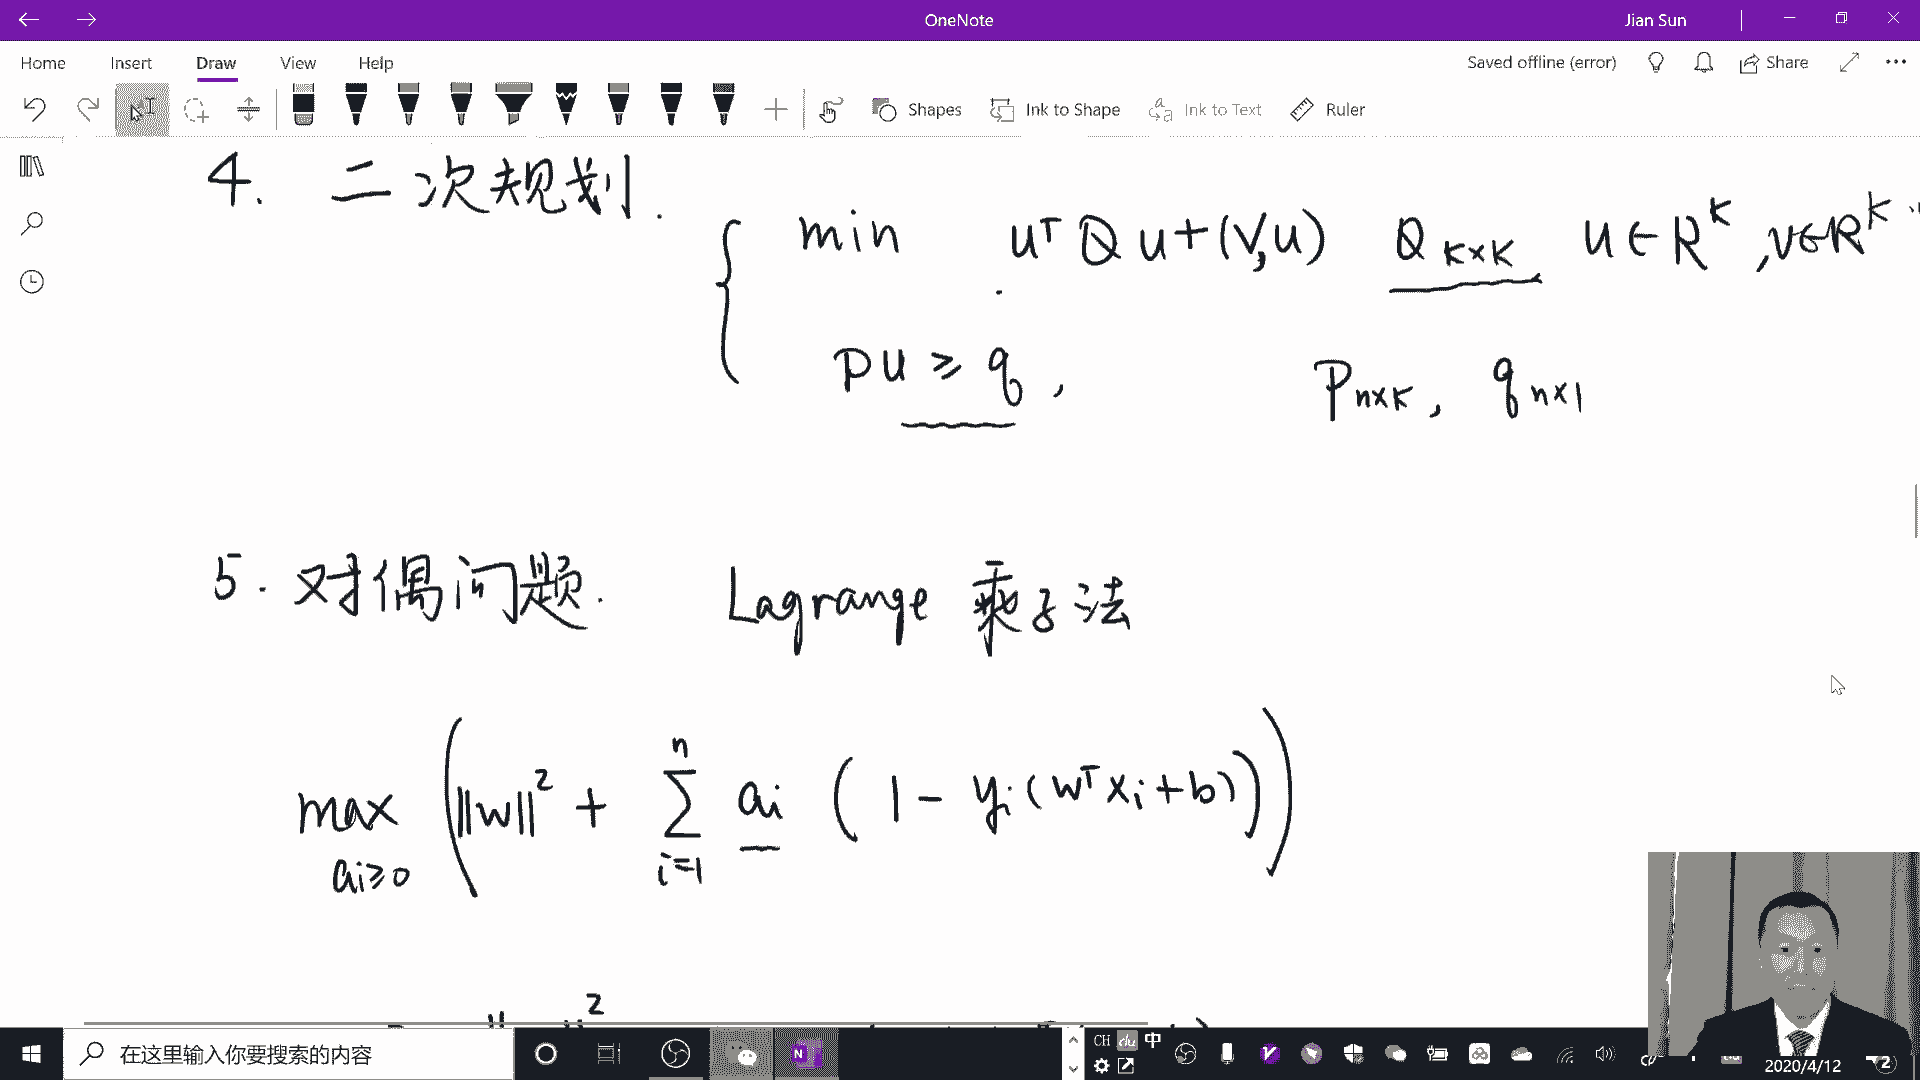 OneNote
Jian Sun
Home Insert Draw View Help
Saved offline (error) Share
Shapes Ink to Shape Ink to Text Ruler
4. 二次规划.
min uᵀQu+(v,u) Q K×K u∈R^K, v∈R^K
Pu ≥ q, P n×K, q n×1
5. 对偶问题. Lagrange 乘子法
n
max (‖w‖² + Σ ai (1 - yi(wᵀxi+b)))
ai≥0 i=1
2
在这里输入你要搜索的内容
CH 中
2020/4/12
2